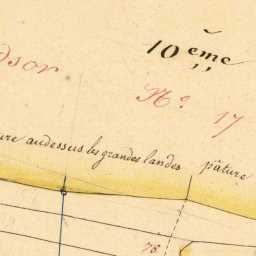 10 ème
dsor
No. 17
ure audessus les grandes landes pâture
78